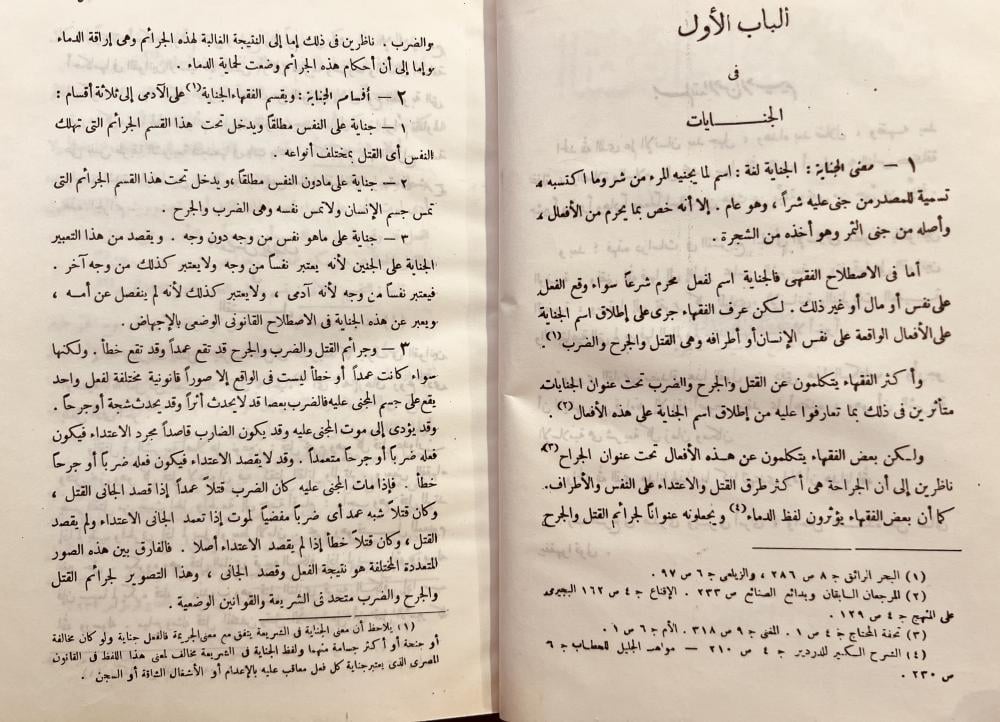 الباب الأول
فى
الجنــايات
١ — معنى الجناية : الجناية لغة : اسم لما يجنيه المرء من شر وما اكتسبه ،
تسمية للمصدر من جنى عليه شراً ، وهو عام . إلا أنه خص بما يحرم من الأفعال ،
وأصله من جنى الثمر وهو أخذه من الشجرة .
أما فى الاصطلاح الفقهى فالجناية اسم لفعل محرم شرعاً سواء وقع الفعل
على نفس أو مال أو غير ذلك . لكن عرف الفقهاء جرى على إطلاق اسم الجناية
على الأفعال الواقعة على نفس الإنسان أو أطرافه وهى القتل والجرح والضرب (١) .
وأكثر الفقهاء يتكلمون عن القتل والجرح والضرب تحت عنوان الجنايات
متأثرين فى ذلك بما تعارفوا عليه من إطلاق اسم الجناية على هذه الأفعال (٢) .
ولكن بعض الفقهاء يتكلمون عن هذه الأفعال تحت عنوان الجراح (٣)
ناظرين إلى أن الجراحة هى أكثر طرق القتل والاعتداء على النفس والأطراف .
كما أن بعض الفقهاء يؤثرون لفظ الدماء (٤) ويجعلونه عنواناً لجرائم القتل والجرح
(١) البحر الرائق ج ٨ ص ٢٨٦ ، والزيلعى ج ٦ ص ٩٧ .
(٢) المرجعان السابقان وبدائع الصنائع ص ٢٣٣ . الإقناع ج ٤ ص ١٦٢ البجيرمى
على المنهج ج ٤ ص ١٢٩ .
(٣) تحفة المحتاج ج ٤ ص ١ . المغنى ج ٩ ص ٣١٨ . الأم ج ٦ ص ١ .
(٤) الشرح الكبير للدردير ج ٤ ص ٢١٠ — مواهب الجليل للحطاب ج ٦
ص ٢٣٠ .
والضرب . ناظرين فى ذلك إما إلى النتيجة الغالبة لهذه الجرائم وهى إراقة الدماء
وإما إلى أن أحكام هذه الجرائم وضعت لحماية الدماء .
٢ — أقسام الجناية : ويقسم الفقهاء الجناية (١) على الآدمى إلى ثلاثة أقسام :
١ — جناية على النفس مطلقاً ويدخل تحت هذا القسم الجرائم التى تهلك
النفس أى القتل بمختلف أنواعه .
٢ — جناية على مادون النفس مطلقاً ، ويدخل تحت هذا القسم الجرائم التى
تمس جسم الإنسان ولاتمس نفسه وهى الضرب والجرح .
٣ — جناية على ماهو نفس من وجه دون وجه . ويقصد من هذا التعبير
الجناية على الجنين لأنه يعتبر نفساً من وجه ولايعتبر كذلك من وجه آخر .
فيعتبر نفساً من وجه لأنه آدمى ، ولايعتبر كذلك لأنه لم ينفصل عن أمه ،
ويعبر عن هذه الجناية فى الاصطلاح القانونى الوضعى بالإجهاض .
٣ — وجرائم القتل والضرب والجرح قد تقع عمداً وقد تقع خطأ . ولكنها
سواء كانت عمداً أو خطأ ليست فى الواقع إلا صوراً قانونية مختلفة لفعل واحد
يقع على جسم المجنى عليه فالضرب بعصا قد لايحدث أثراً وقد يحدث شجة أو جرحاً .
وقد يؤدى إلى موت المجنى عليه وقد يكون الضارب قاصداً مجرد الاعتداء فيكون
فعله ضرباً أو جرحاً متعمداً . وقد لايقصد الاعتداء فيكون فعله ضرباً أو جرحاً
خطأ . فإذا مات المجنى عليه كان الضرب قتلاً عمداً إذا قصد الجانى القتل ،
وكان قتلاً شبه عمد أى ضرباً مفضياً لموت إذا تعمد الجانى الاعتداء ولم يقصد
القتل ، وكان قتلاً خطأ إذا لم يقصد الاعتداء أصلا . فالفارق بين هذه الصور
المتعددة المختلفة هو نتيجة الفعل وقصد الجانى ، وهذا التصوير لجرائم القتل
والجرح والضرب متحد فى الشريعة والقوانين الوضعية .
(١) يلاحظ أن معنى الجناية فى الشريعة يتفق مع معنى الجريمة فالفعل جناية ولو كان مخالفة
أو جنحة أو أكثر جسامة منهما ولفظ الجناية فى الشريعة مخالف لمعنى هذا اللفظ فى القانون
المصرى الذى يعتبر جناية كل فعل معاقب عليه بالإعدام أو الأشغال الشاقة أو السجن .